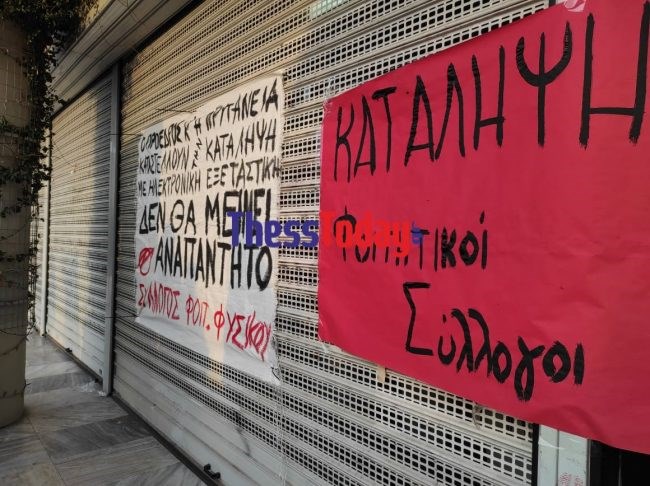 Ο ΠΡΟΕΔΡΟΣ Κ' Η ΠΡΥΤΑΝΕΙΑ
ΚΑΤΑΣΤΕΛΛΟΥΝ ΤΗΝ ΚΑΤΑΛΗΨΗ
ΜΕ ΗΛΕΚΤΡΟΝΙΚΗ ΕΞΕΤΑΣΤΙΚΗ
ΔΕΝ ΘΑ ΜΕΙΝΕΙ
ΑΝΑΠΑΝΤΗΤΟ
ΣΥΛΛΟΓΟΣ ΦΟΙΤ. ΦΥΣΙΚΟΥ
ΚΑΤΑΛΗΨΗ
Φοιτητικοί
Σύλλογοι
ThessToday.gr